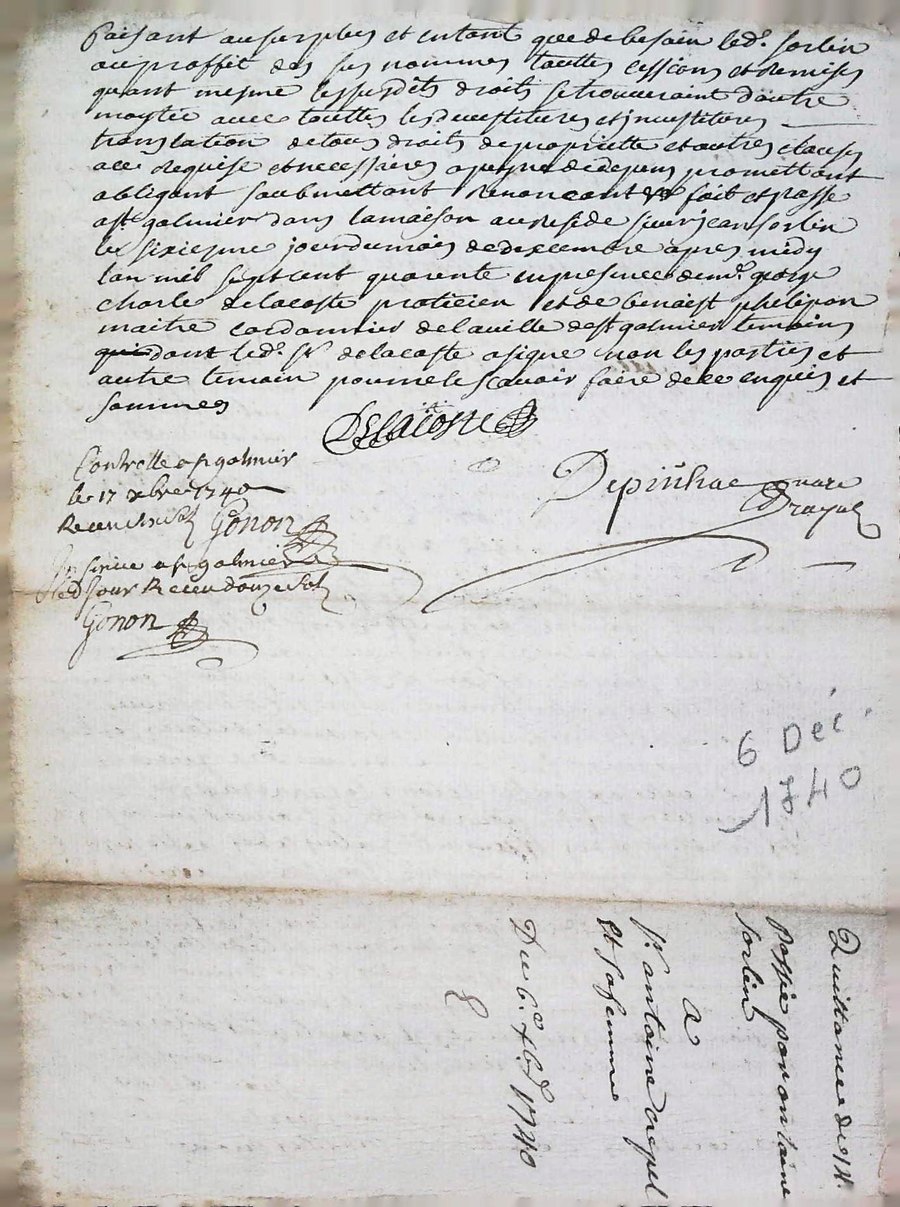 faisant au surplus et entant que de besoin led. sorlin
au proffit des sus nommes touttes cessions et remises
quant mesme lessusdits droits se trouveraint d'autre
avec touttes les devestitures et investitures
translation de tous droits de propriette et autres clauses
a ce requise et necessaires a peyne de depens promettant
obligent soubmettant renoncant fait et passe
a st galmier dans la maison au reside sieur jean sorlin
le sixiesme jour du mois de dexcembre apres midy
lan mil sept cent quarente en presence de mr. george
charle delacoste praticien et de benoist philipon
maitre cordonnier de la ville de st galmier temoins
dont led. sr. delacoste a signe non les parties et
autre temoin pour ne le scavoir faire de ce enquis et
sommes
Delacoste
Depinhac nore
Royal
Controlle a st galmier
le 17 xbre 1740
Receu Gonon
Insinue a st galmier
led jour Receu douze sols
Gonon
6 Déc.
1740
Quittance de
passée par antoine
sorlin
a
sr. antoine crepel
et sa femme
Du 6e. xbre 1740